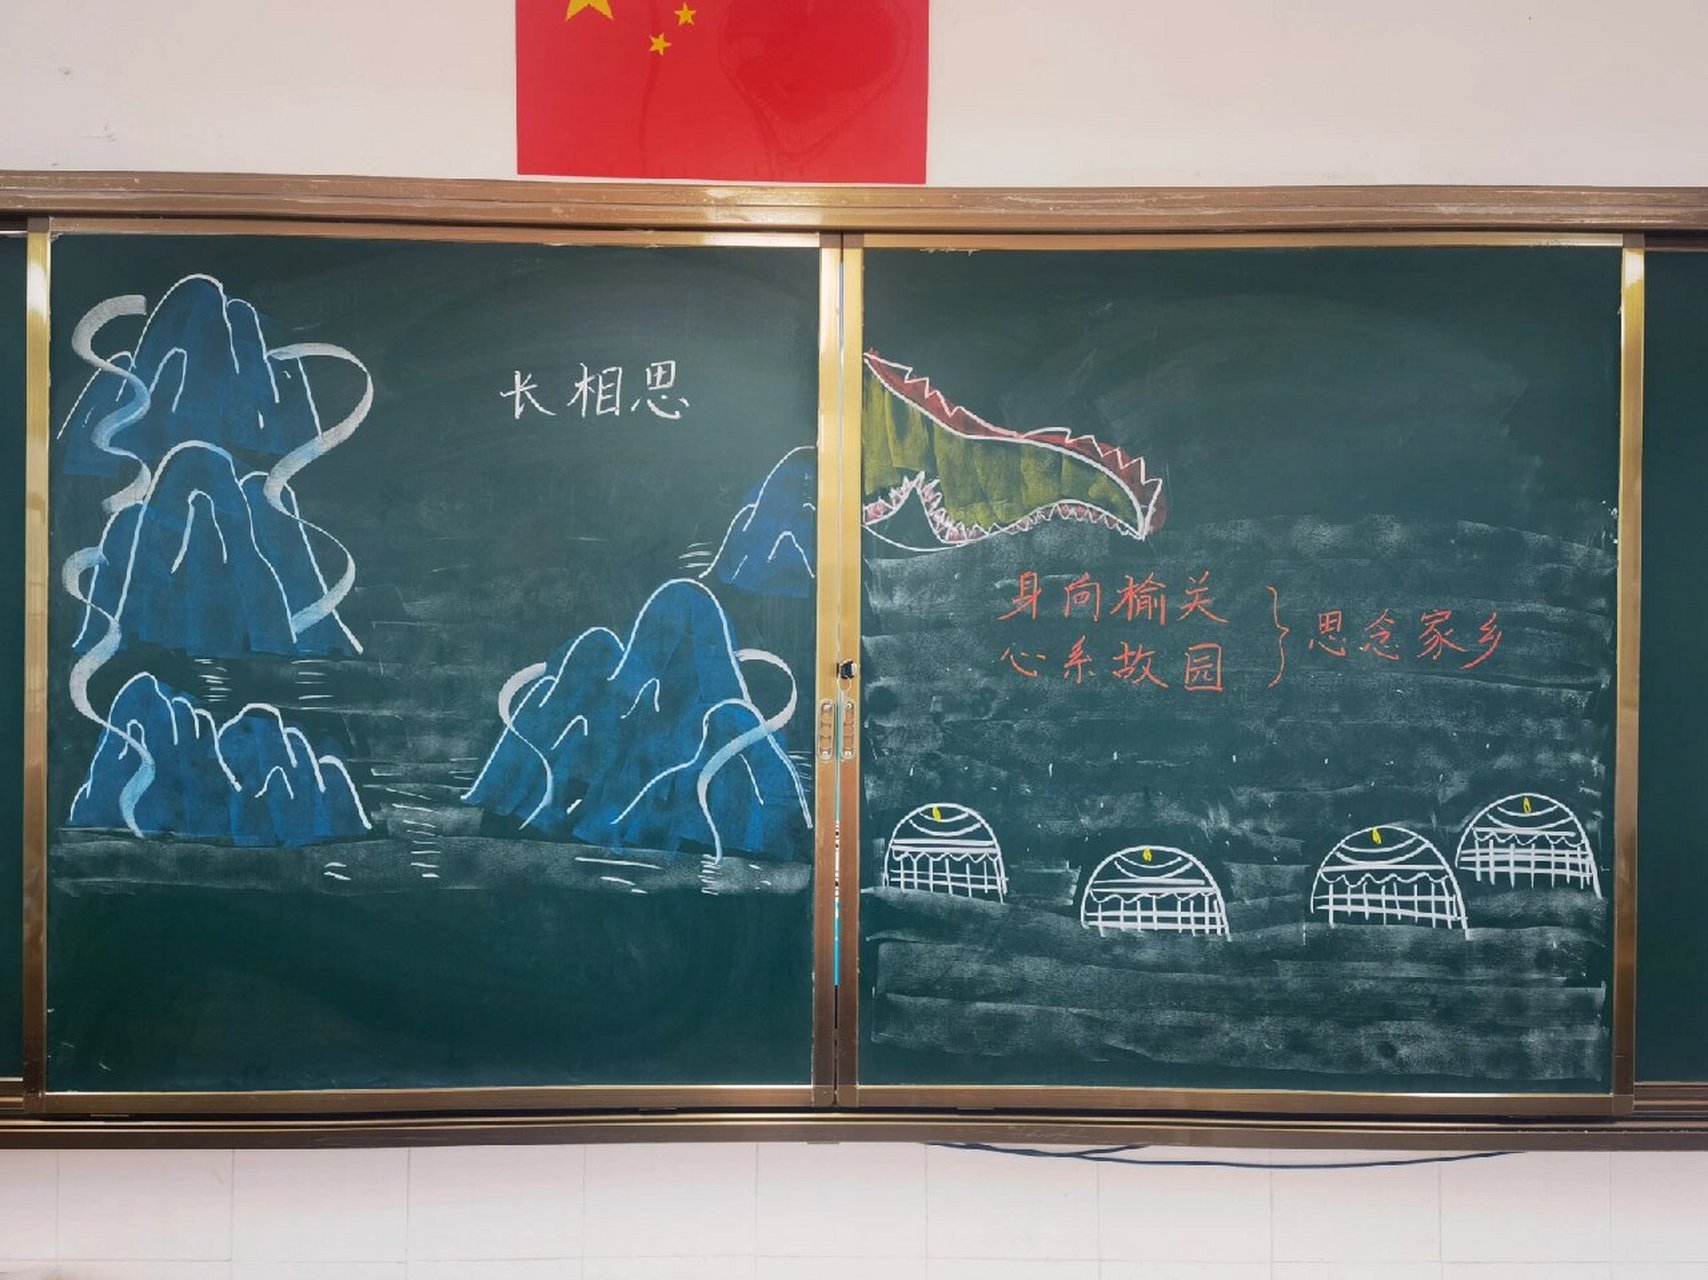 长相思
身向榆关
心系故园
思念家乡